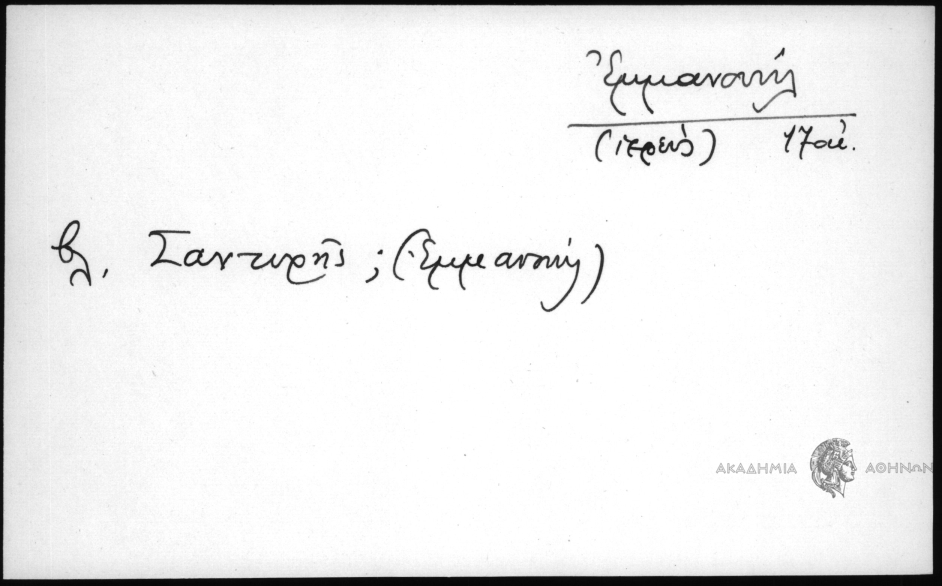 Ἐμμανουήλ
(ἱερεύς) 17 αἰ.
βλ. Σαντυρῆς ; (Ἐμμανουήλ)
ΑΚΑΔΗΜΙΑ ΑΘΗΝΩΝ